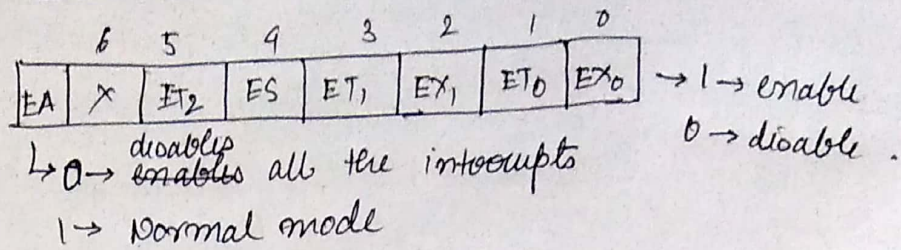 6 5 4 3 2 1 0
EA X ET2 ES ET1 EX1 ET0 EX0 → 1 → enable
0 → disable.
disables
↳ 0 → enables all the interrupts
1 → Normal mode